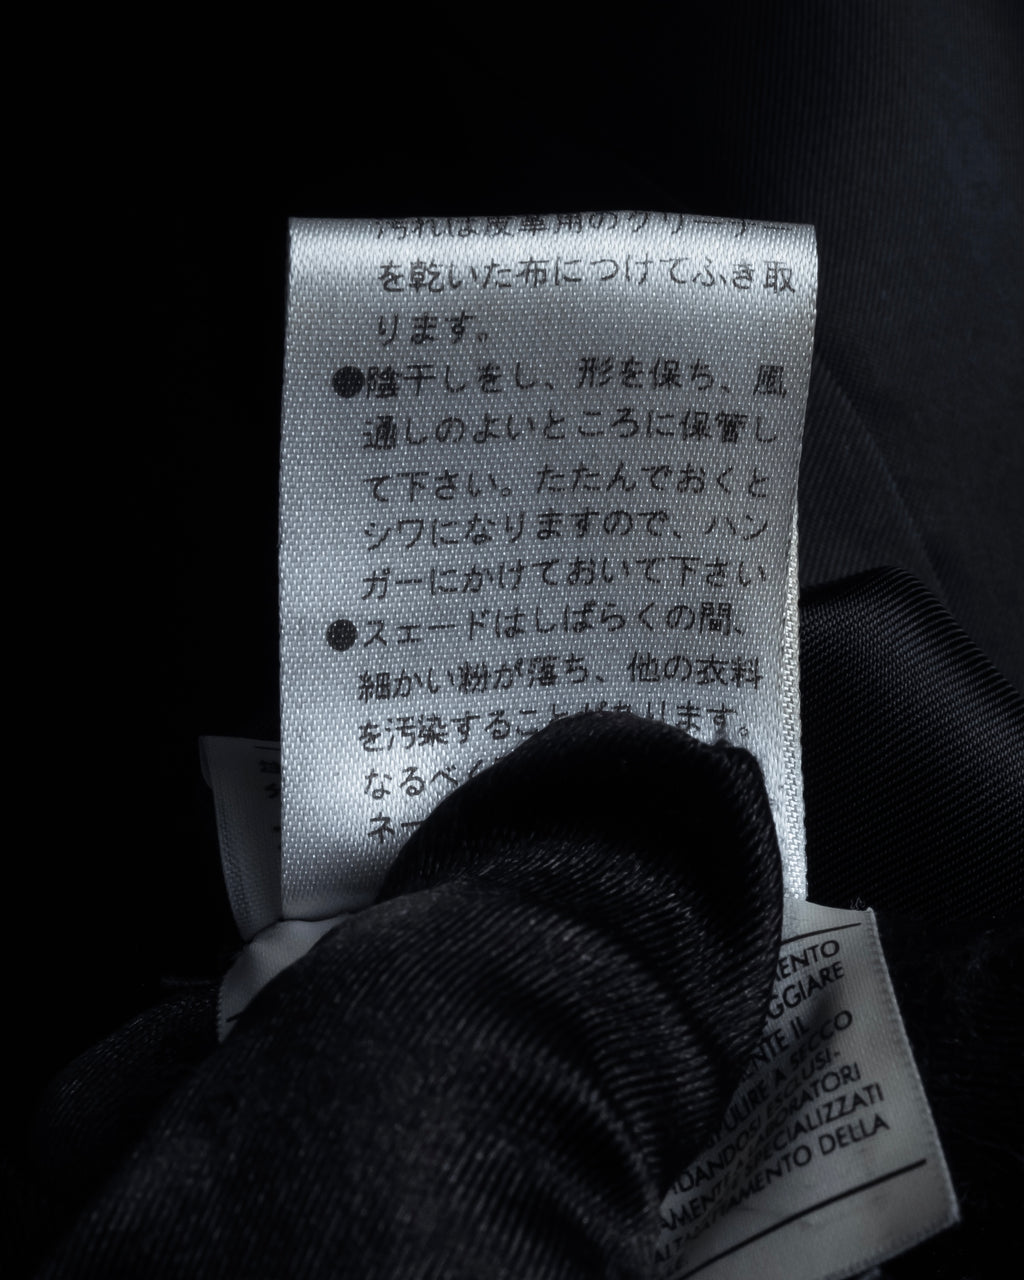 汚れは皮革用のクリーナー
を乾いた布につけてふき取
ります。
●陰干しをし、形を保ち、風
通しのよいところに保管し
て下さい。たたんでおくと
シワになりますので、ハン
ガーにかけておいて下さい
●スエードはしばらくの間、
細かい粉が落ち、他の衣料
を汚染することがあります。
なるべく
ネー
MENTO
GGIARE
NTE IL
PULIRE A SECCO
DANDOSI ESCLUSI-
AMENTE A LABORATORI
SPECIALIZZATI
AL TRATTAMENTO DELLA